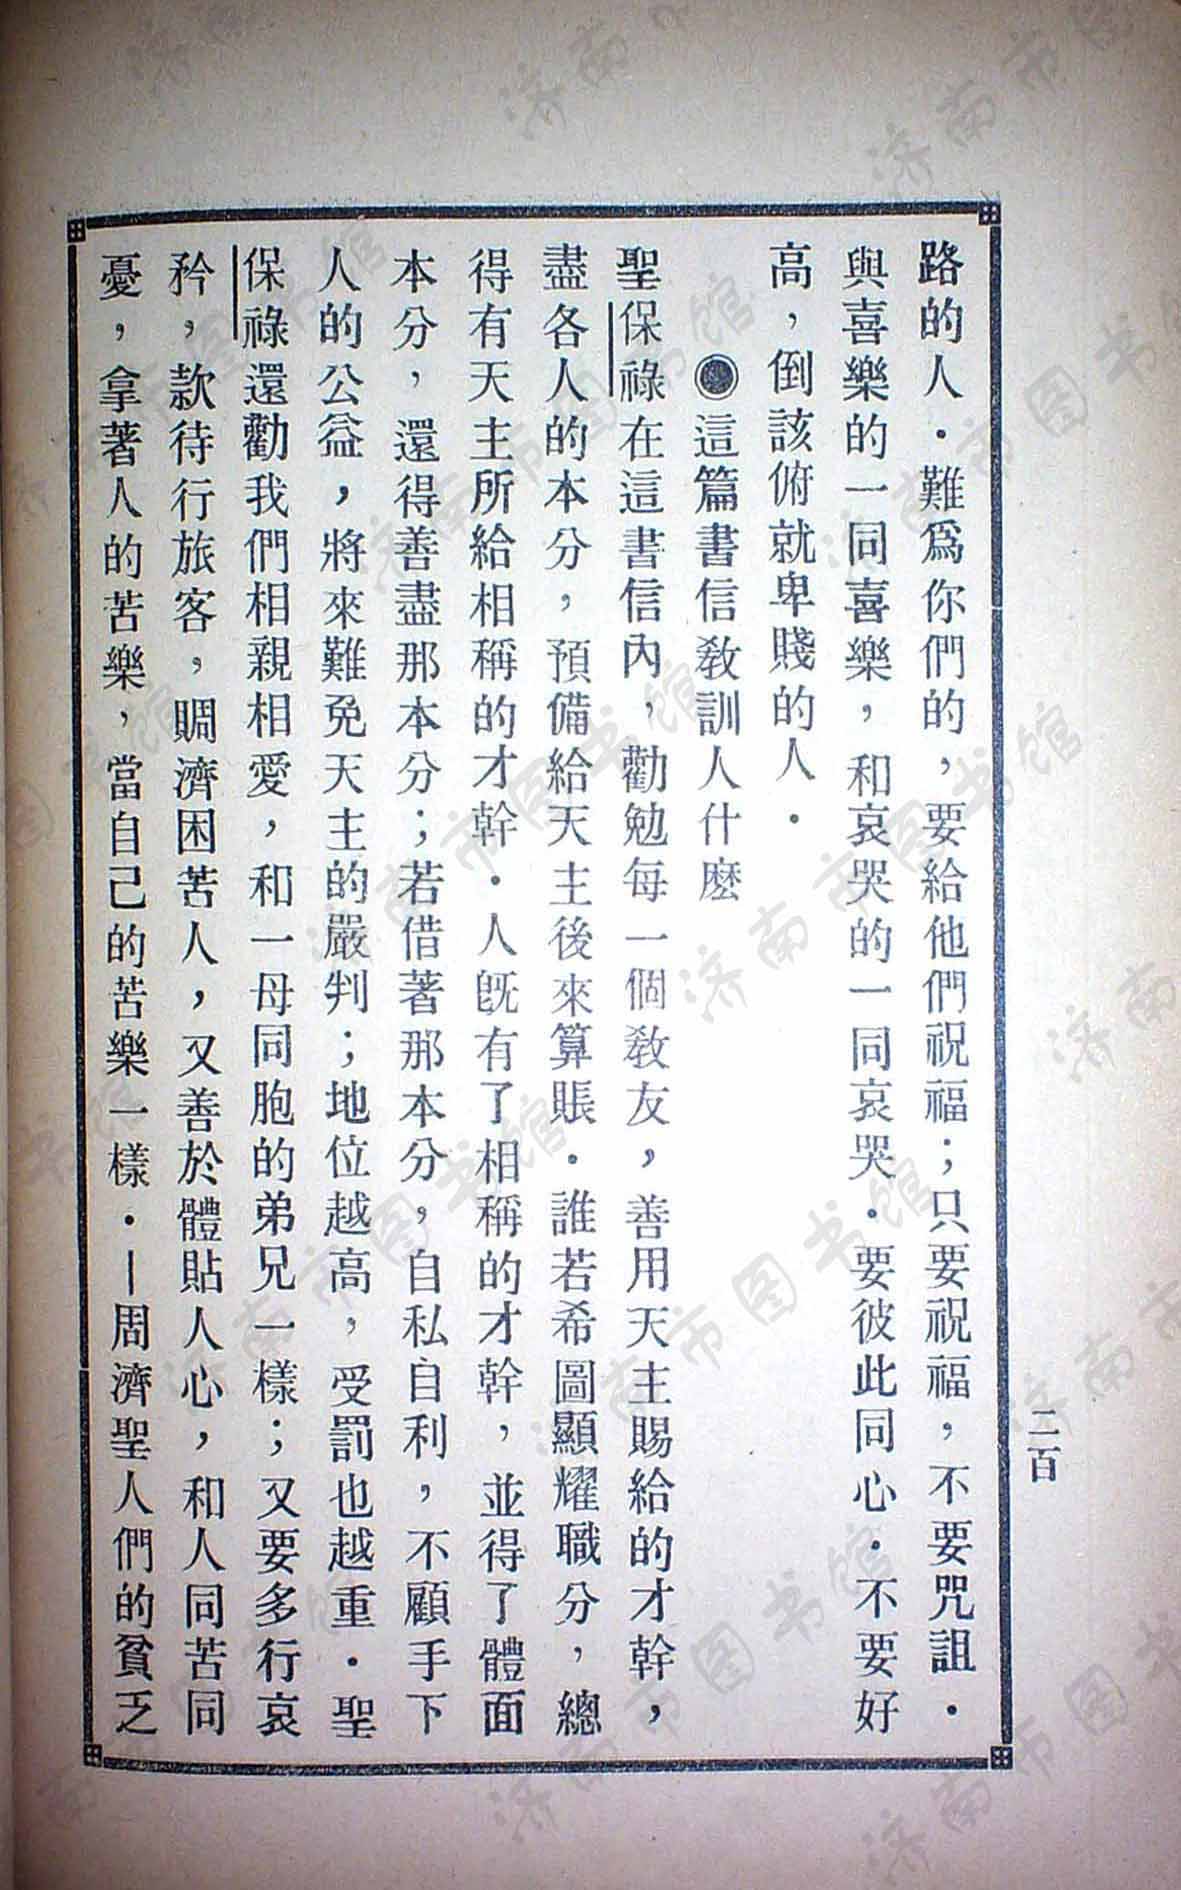 路的人．難爲你們的，要給他們祝福；只要祝福，不要咒詛．
與喜樂的一同喜樂，和哀哭的一同哀哭．要彼此同心．不要好
高，倒該俯就卑賤的人．
◉這篇書信敎訓人什麽
聖保祿在這書信內，勸勉每一個敎友，善用天主賜給的才幹，
盡各人的本分，預備給天主後來算賬．誰若希圖顯耀職分，總
得有天主所給相稱的才幹．人旣有了相稱的才幹，並得了體面
本分，還得善盡那本分；若借著那本分，自私自利，不顧手下
人的公益，將來難免天主的嚴判；地位越高，受罰也越重．聖
保祿還勸我們相親相愛，和一母同胞的弟兄一樣；又要多行哀
矜，款待行旅客，賙濟困苦人，又善於體貼人心，和人同苦同
憂，拿著人的苦樂，當自己的苦樂一樣．—周濟聖人們的貧乏
二百
济南市图书馆